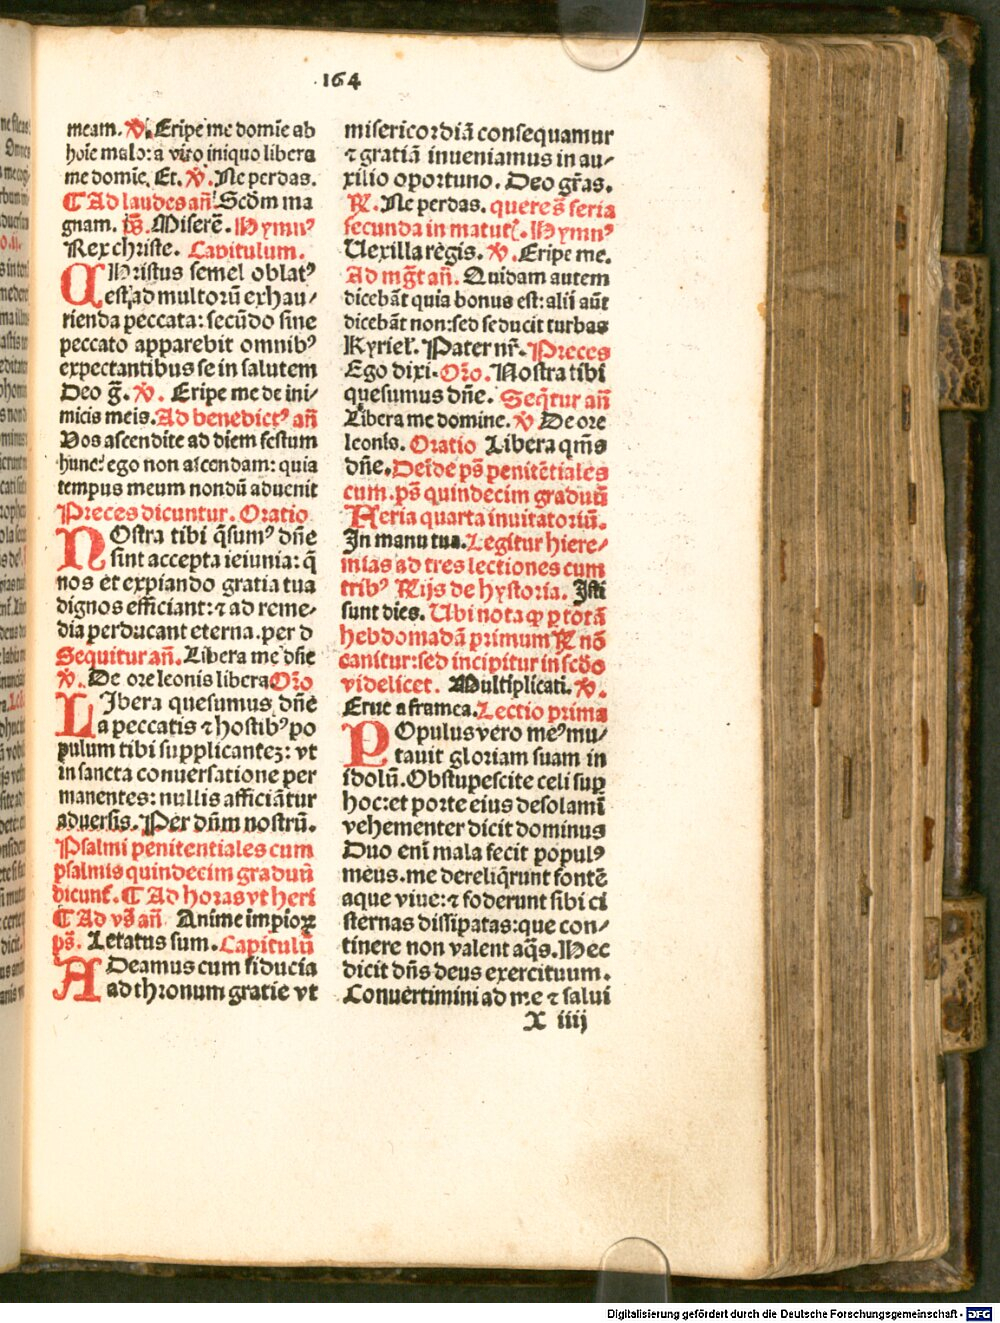 164
meam. ℣. Eripe me domīe ab
hoīe malo: a viro iniquo libera
me domīe. Et. ℣. Ne perdas.
¶ Ad laudes añ Scdm ma
gnam. p̄s. Miserē. Hymnꝰ
Rex christe. Capitulum.
CHristus semel oblatꝰ
est ad multorū exhau⸗
rienda peccata: secūdo sine
peccato apparebit omnibꝰ
expectantibus se in salutem
Deo ḡ. ℣. Eripe me de ini⸗
micis meis. Ad benedictꝰ añ
Vos ascendite ad diem festum
hunc: ego non ascendam: quia
tempus meum nondū aduenit
Preces dicuntur. Oratio
NOstra tibi q̄sumꝰ dñe
sint accepta ieiunia: q̄
nos et expiando gratia tua
dignos efficiant: ⁊ ad reme⸗
dia perducant eterna. per d
Sequitur añ. Libera me dñe
℣. De ore leonis libera Oro
LIbera quesumus dñe
a peccatis ⁊ hostibꝰ po
pulum tibi supplicantez: vt
in sancta conuersatione per
manentes: nullis afficiātur
aduersis. Per dūm nostrū.
Psalmi penitentiales cum
psalmis quindecim graduū
dicunt̄. ¶ Ad horas vt heri
¶ Ad vs̄ añ Anime impioꝝ
ps̄. Letatus sum. Capitulū
ADeamus cum fiducia
ad thronum gratie vt
misericordiā consequamur
⁊ gratiā inueniamus in au⸗
xilio oportuno. Deo gr̄as.
℟. Ne perdas. quere s̄ feria
secunda in matut̄. Hymnꝰ
Uexilla regis. ℣. Eripe me.
Ad mg̅t añ. Quidam autem
dicebāt quia bonus est: alii aūt
dicebāt non: sed seducit turbas
Kyriel. Pater nr̄. Preces
Ego dixi. Oro. Nostra tibi
quesumus dñe. Seq̄tur añ
Libera me domine. ℣ De ore
leonis. Oratio Libera qm̄s
dñe. Deīde ps̄ penitētiales
cum. ps̄ quindecim graduū
Feria quarta inuitatoriū.
In manu tua. Legitur hiere⸗
mias ad tres lectiones cum
tribꝰ Rijs de hystoria. Isti
sunt dies. Ubi nota ꝙ ꝑ totā
hebdomadā primum ℟ nō
canitur: sed incipitur in scdo
videlicet. Multiplicati. ℣.
Erue a framea. Lectio prima
POpulus vero meꝰ mu⸗
tauit gloriam suam in
idolū. Obstupescite celi suꝑ
hoc: et porte eius desolamī
vehementer dicit dominus
Duo enī mala fecit populꝰ
meus. me dereliq̄runt fontē
aque viue: ⁊ foderunt sibi ci
sternas dissipatas: que con⸗
tinere non valent aq̄s. Hec
dicit dñs deus exercituum.
Conuertimini ad me ⁊ salui
X iiij
Digitalisierung gefördert durch die Deutsche Forschungsgemeinschaft - DFG